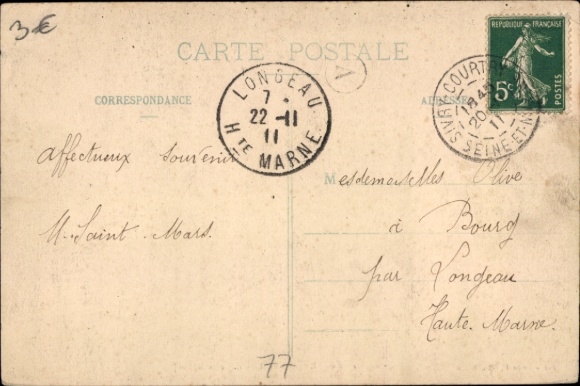 3€
CARTE POSTALE
CORRESPONDANCE
ADRESSE
RÉPUBLIQUE FRANÇAISE
5c
POSTES
LONGEAU
7
22 -11
11
Hte MARNE
A
SIVRY-COURTRY
20
11
SEINE-ET-M
Affectueux souvenir
Mesdemoiselles Olive
à Bourg
M. Saint-Mars.
par Longeau
Haute-Marne.
77